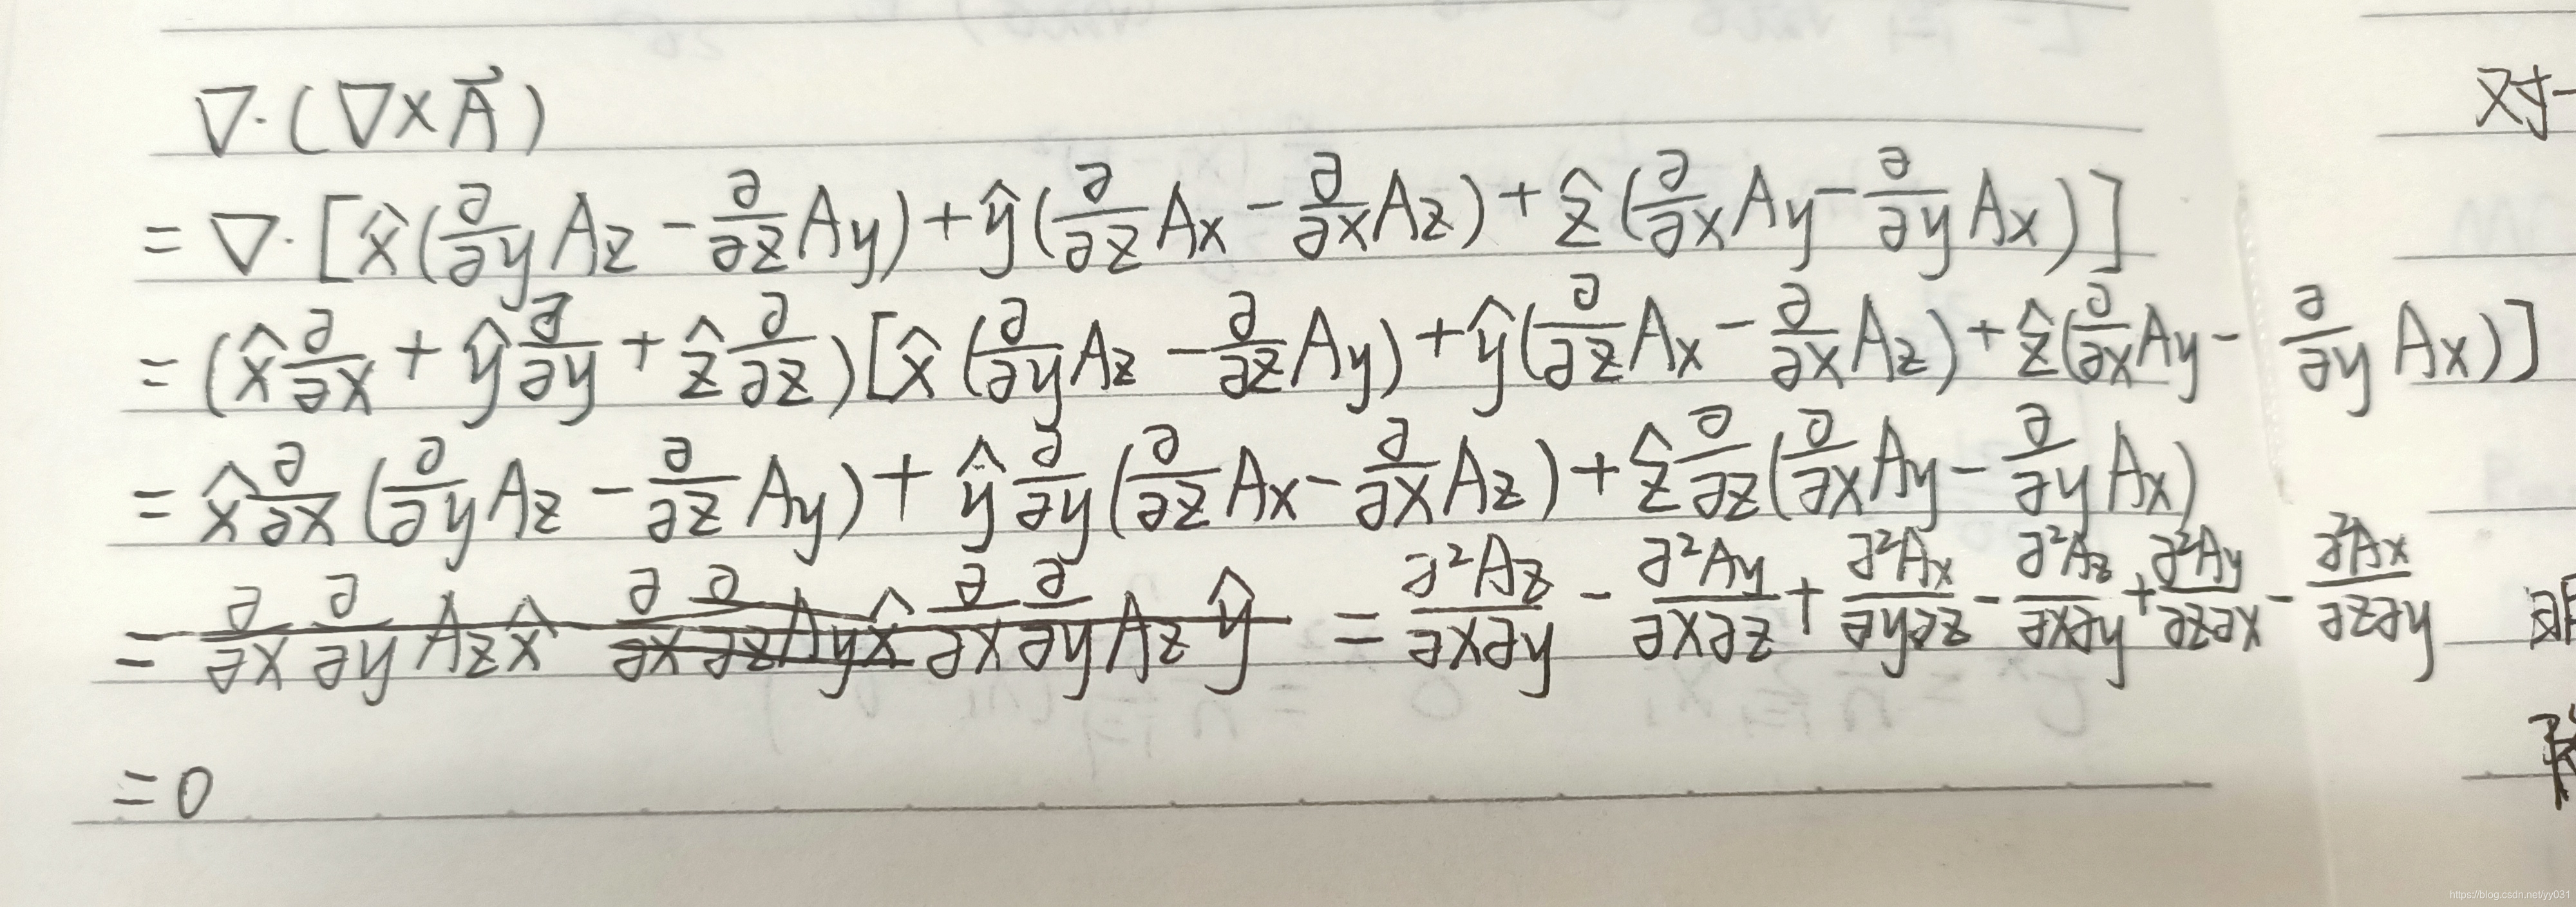 ∇·(∇×A⃗)
= ∇·[x̂(∂/∂y Az − ∂/∂z Ay) + ŷ(∂/∂z Ax − ∂/∂x Az) + ẑ(∂/∂x Ay − ∂/∂y Ax)]
= (x̂ ∂/∂x + ŷ ∂/∂y + ẑ ∂/∂z)[x̂(∂/∂y Az − ∂/∂z Ay) + ŷ(∂/∂z Ax − ∂/∂x Az) + ẑ(∂/∂x Ay − ∂/∂y Ax)]
= x̂ ∂/∂x (∂/∂y Az − ∂/∂z Ay) + ŷ ∂/∂y (∂/∂z Ax − ∂/∂x Az) + ẑ ∂/∂z (∂/∂x Ay − ∂/∂y Ax)
= ∂/∂x ∂/∂y Az x̂ − ∂/∂x ∂/∂z Ay x̂ ∂/∂x ∂/∂y Az ŷ = ∂²Az/∂x∂y − ∂²Ay/∂x∂z + ∂²Ax/∂y∂z − ∂²Az/∂x∂y + ∂²Ay/∂z∂x − ∂²Ax/∂z∂y
= 0
对
https://blog.csdn.net/yy031